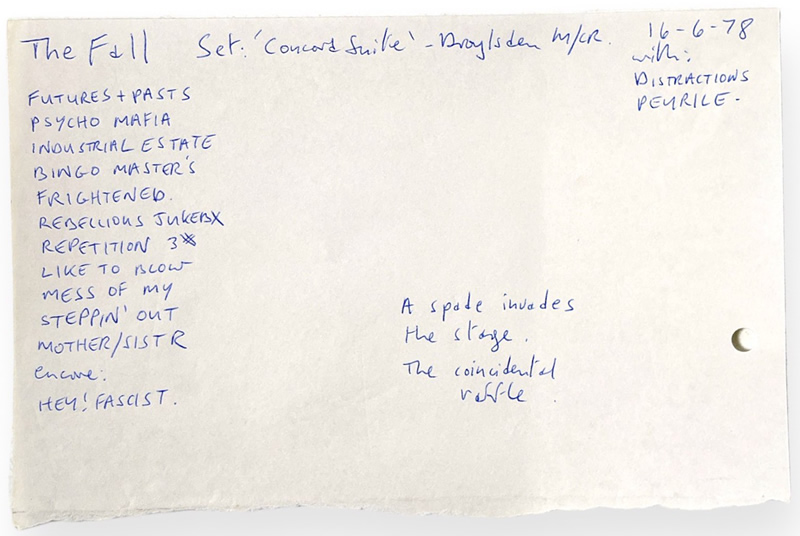 The Fall Set: 'Concord Suite' - Droylsden M/CR. 16-6-78
with:
DISTRACTIONS
PEURILE.
FUTURES + PASTS
PSYCHO MAFIA
INDUSTRIAL ESTATE
BINGO MASTER'S
FRIGHTENED.
REBELLIOUS JUKEBX
REPETITION 3
LIKE TO BLOW
MESS OF MY
STEPPIN' OUT
MOTHER/SISTR
encore:
HEY! FASCIST.
A spade invades
the stage.
The coincidental
raffle.